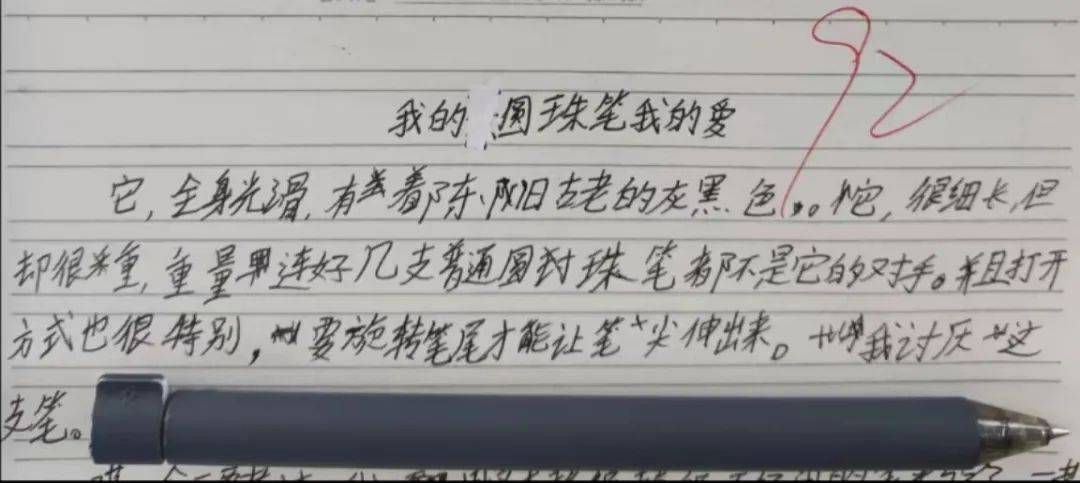 92
我的圆珠笔我的爱
它,全身光滑,有着陈旧古老的灰黑色。它,很细长,但
却很重,重量连好几支普通圆珠笔都不是它的对手。并且打开
方式也很特别,要旋转笔尾才能让笔尖伸出来。我讨厌这
支笔。